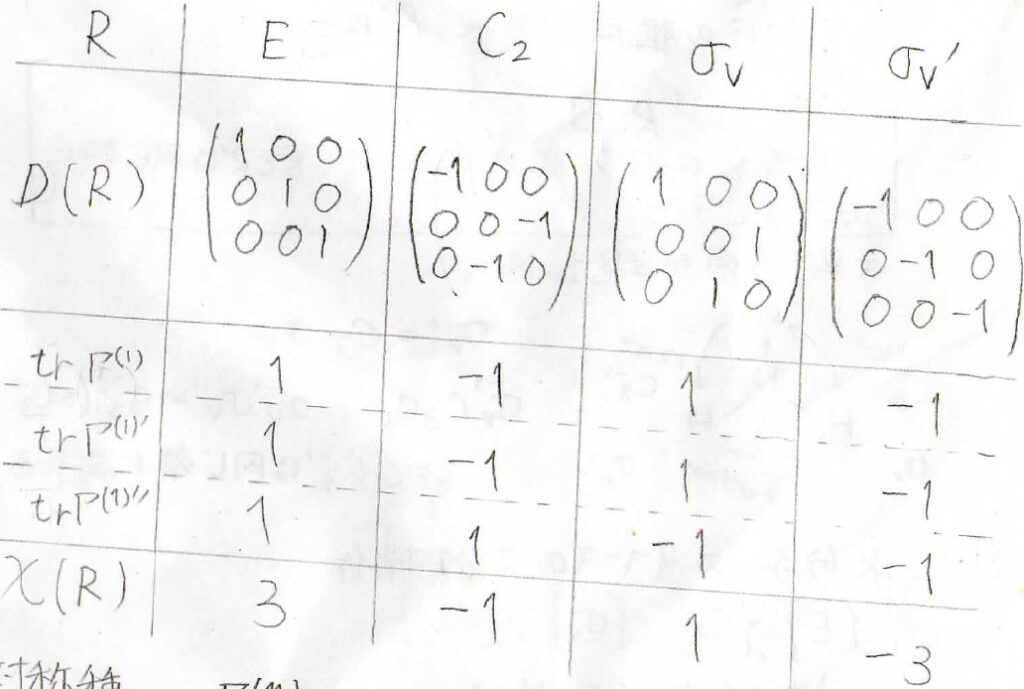 R E C₂ σᵥ σᵥ′
D(R) (1 0 0 / 0 1 0 / 0 0 1) (-1 0 0 / 0 0 -1 / 0 -1 0) (1 0 0 / 0 0 1 / 0 1 0) (-1 0 0 / 0 -1 0 / 0 0 -1)
tr Γ⁽¹⁾ 1 -1 1 -1
tr Γ⁽¹⁾′ 1 -1 1 -1
tr Γ⁽¹⁾″ 1 1 -1 -1
χ(R) 3 -1 1 -3
対称種